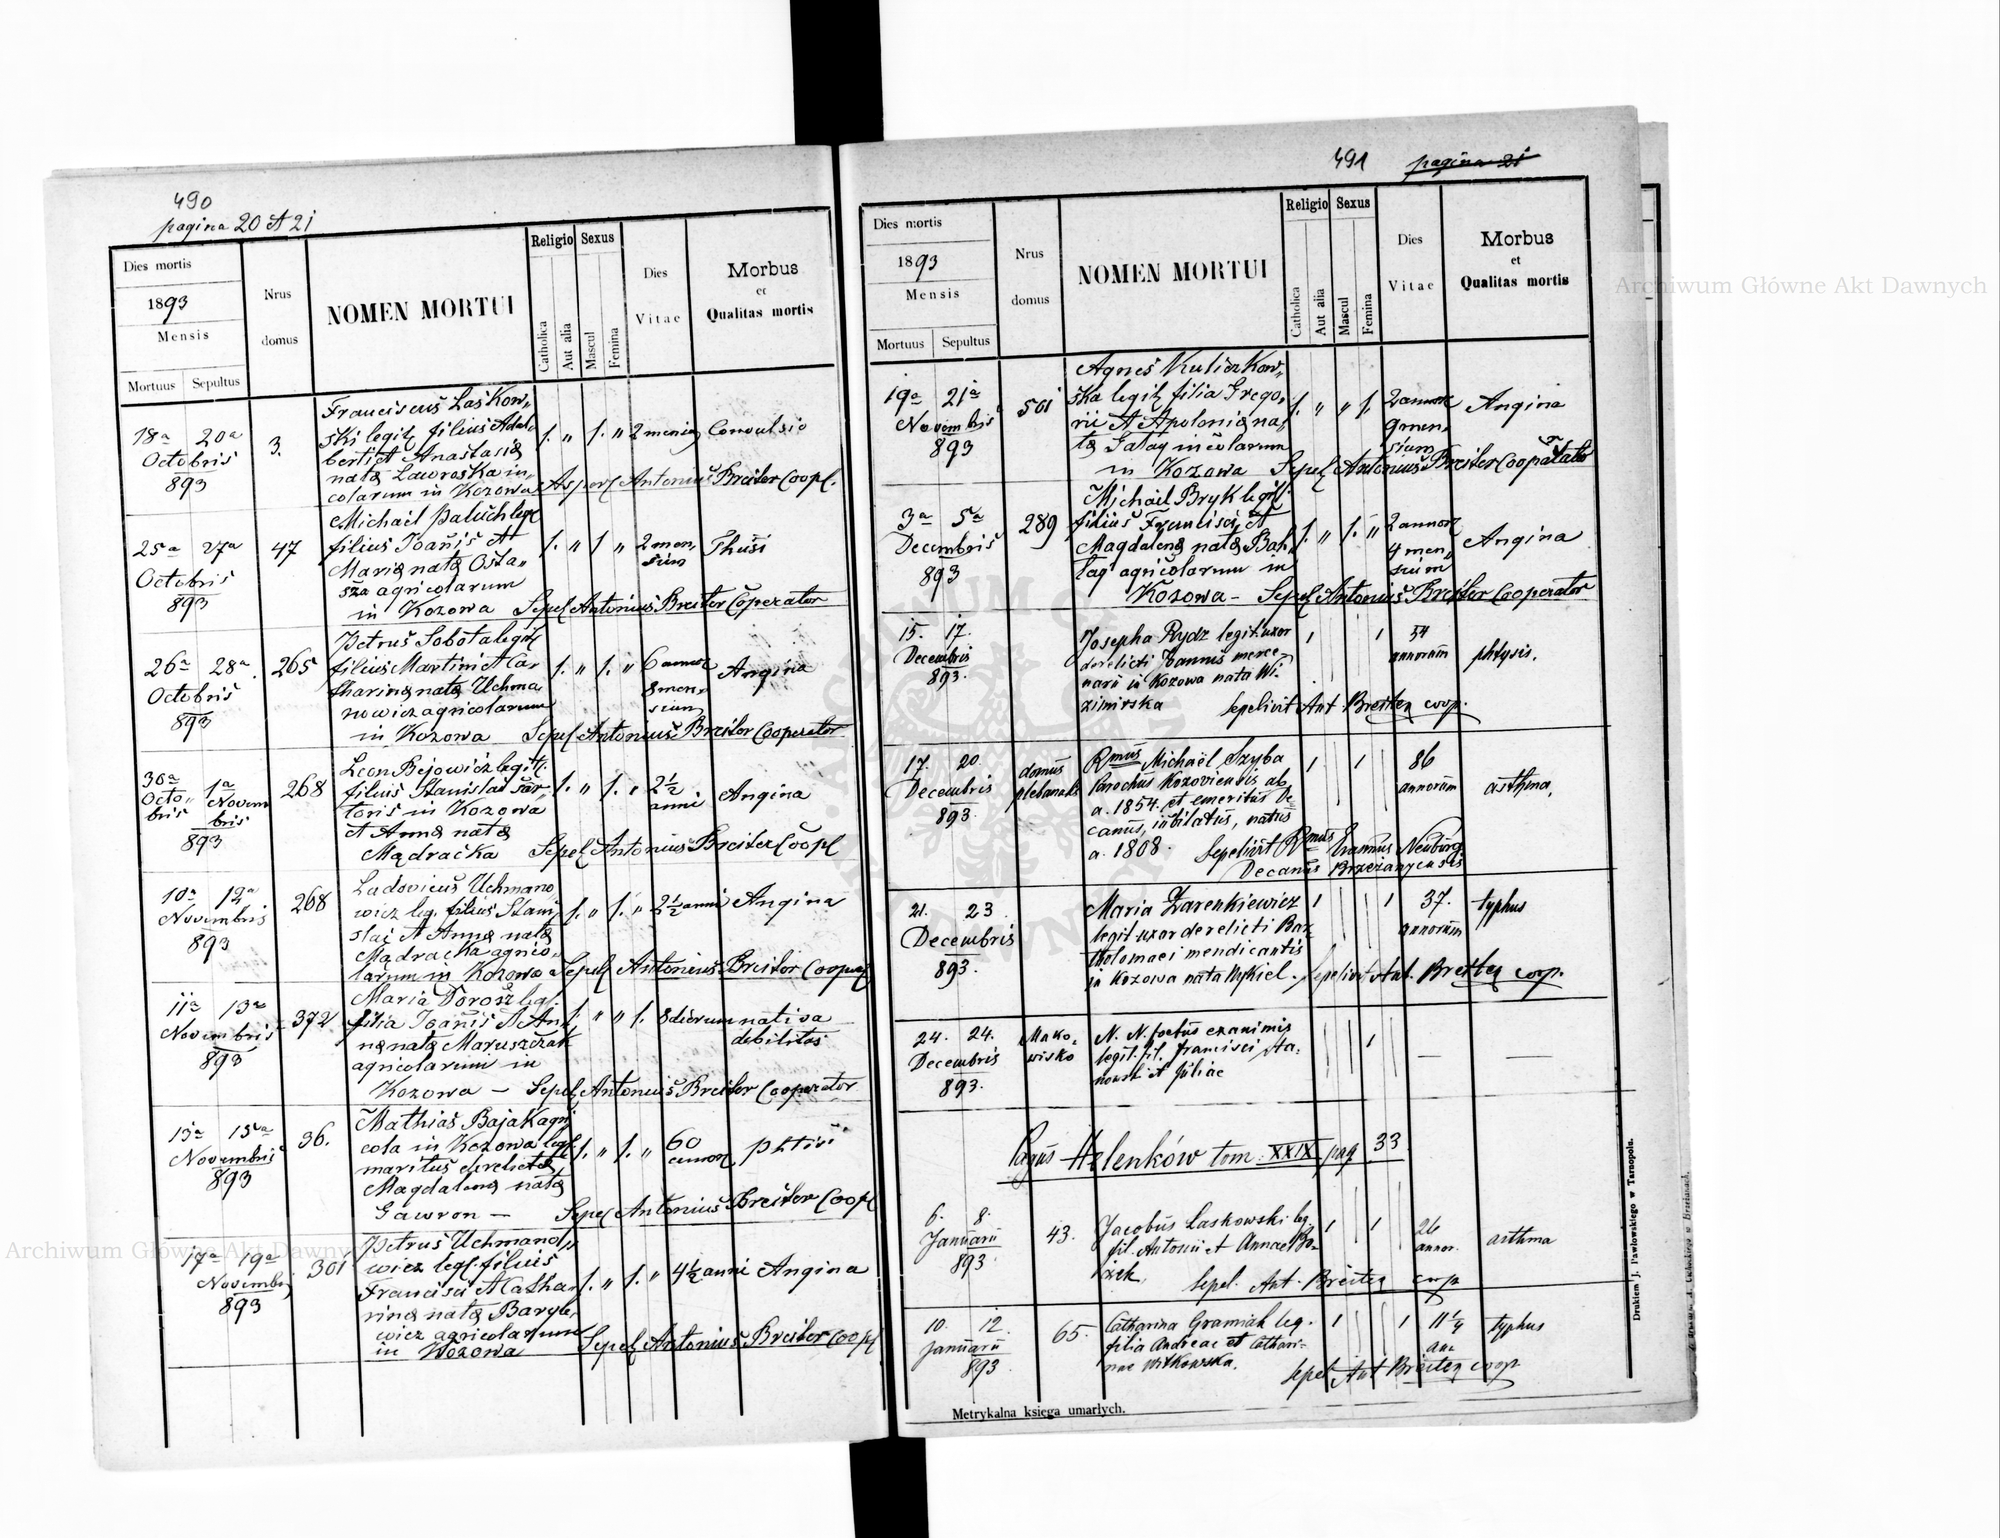 490
pagina 20 et 21
Dies mortis
1893
Mensis
Mortuus Sepultus
Nrus domus
NOMEN MORTUI
Religio
Catholica
Aut alia
Sexus
Mascul
Femina
Dies Vitae
Morbus
et
Qualitas mortis
18a 20a
Octobris
893
3.
Franciscus Laskow„
ski legit. filius Adal„
berti et Anastasiae
natae Lawroska in„
colarum in Kozowa
1. „ 1. „
2 mensium
Convulsio
Antonius Breiter Coopl.
25a 27a
Octobris
893
47
Michael Paluch leg.
filius Joañis et
Mariae natae Osta„
sza agricolarum
in Kozowa Sepel. Antonius Breiter Cooperator
1. „ 1 „
2 men„
sium
Thusi
26a 28a.
Octobris
893
265
Petrus Sobota legit.
filius Martini et Ca„
tharinae natae Uchma„
nowicz agricolarum
in Kozowa Sepel. Antonius Breiter Cooperator
1. „ 1. „
6 annor.
8 men„
sium
Angina
30a
Octo„
bris
1a
Novem
bris
893
268
Leon Bejowicz legit.
filius Stanislai sar„
toris in Kozowa
et Annae natae
Mądracka Sepel. Antonius Breiter Coopl
1. „ 1. „
2½
anni
Angina
10a 12a
Novembris
893
268
Ludovicus Uchmano
wicz leg. filius Stani
slai et Annae natae
Mądracka agrico„
larum in Kozowa Sepel. Antonius Breiter Cooper
1. „ 1. „
2½ anni
Angina
11a 13a
Novembris
893
372
Maria Dorosz leg.
filia Joañis et An
nae natae Maruszczak
agricolarum in
Kozowa — Sepel. Antonius Breiter Cooperator
1. „ „ 1.
8 dierum
nativa
debilitas
13a 15a
Novembris
893
36.
Mathias Bajak agri
cola in Kozowa legit.
maritus derelictae
Magdalenae natae
Gawron — Sepel. Antonius Breiter Coopl
1. „ 1. „
60
annor.
17a 19a
Novembri
893
301
Petrus Uchmano„
wicz legit. filius
Francisci et Catha„
rinae natae Baryle„
wicz agricolarum
in Kozowa Sepel. Antonius Breiter Coopl
1. „ 1. „
4½ anni
Angina
491
pagina 21
Dies mortis
1893
Mensis
Mortuus Sepultus
Nrus domus
NOMEN MORTUI
Religio
Catholica
Aut alia
Sexus
Mascul
Femina
Dies Vitae
Morbus
et
Qualitas mortis
19a 21a
Novembris
893
501
Agnes Kuliczkow„
ska legit. filia Grego„
rii et Apoloniae na„
tae Gałay incolarum
in Kozowa Sepel. Antonius Breiter Cooperator
1. „ „ 1.
2 annor.
9 men„
sium
Angina
3a 5a
Decembris
893
289
Michael Bryk legit.
filius Francisci et
Magdalenae natae Bah„
lay agricolarum in
Kozowa — Sepel. Antonius Breiter Cooperator
1. „ 1. „
2 annor.
4 men„
sium
Angina
15. 17.
Decembris
893.
Josepha Rydz legit. uxor
derelicti Joannis merce„
narii in Kozowa nata Wi„
zimirska Sepelivit Ant Breiter coop.
1 1
54
annorum
phtysis.
17. 20.
Decembris
893.
domus
plebanalis
Rmus Michaël Szyba
Parochus Kozoviensis ab
a. 1854. et emeritus De„
canus, iubilatus, natus
a. 1808. Sepelivit Rmus Erasmus Neuburg
Decanus Brzeżanycensis
1 1
86
annorum
asthma.
21. 23
Decembris
893.
Maria Zarenkiewicz
legit uxor derelicti Bar„
tholomaei mendicantis
in Kozowa nata Mykiel. Sepelivit Ant. Breiter coop.
1 1
37.
annorum
typhus
24. 24.
Decembris
893.
Mako„
wisko
N. N. foetus exanimis
legit. fil. Francisci
et Juliae
1
— —
Pagus Helenków tom XXIX pag 33
6. 8.
Januarii
893
43.
Jacobus Laskowski leg.
fil. Antonii et Annae Bo„
żek, Sepel. Ant. Breiter coop
1 1
26
annor.
asthma
10. 12.
Januarii
893
65.
Catharina Gramiak leg.
filia Andreae et Cathari„
nae Witkowska. Sepel Ant Breiter coop
1 1
11 ¼
an
typhus
Metrykalna księga umarłych.
Drukiem J. Pawłowskiego w Tarnopolu.
Archiwum Główne Akt Dawnych
Archiwum Główne Akt Dawnych